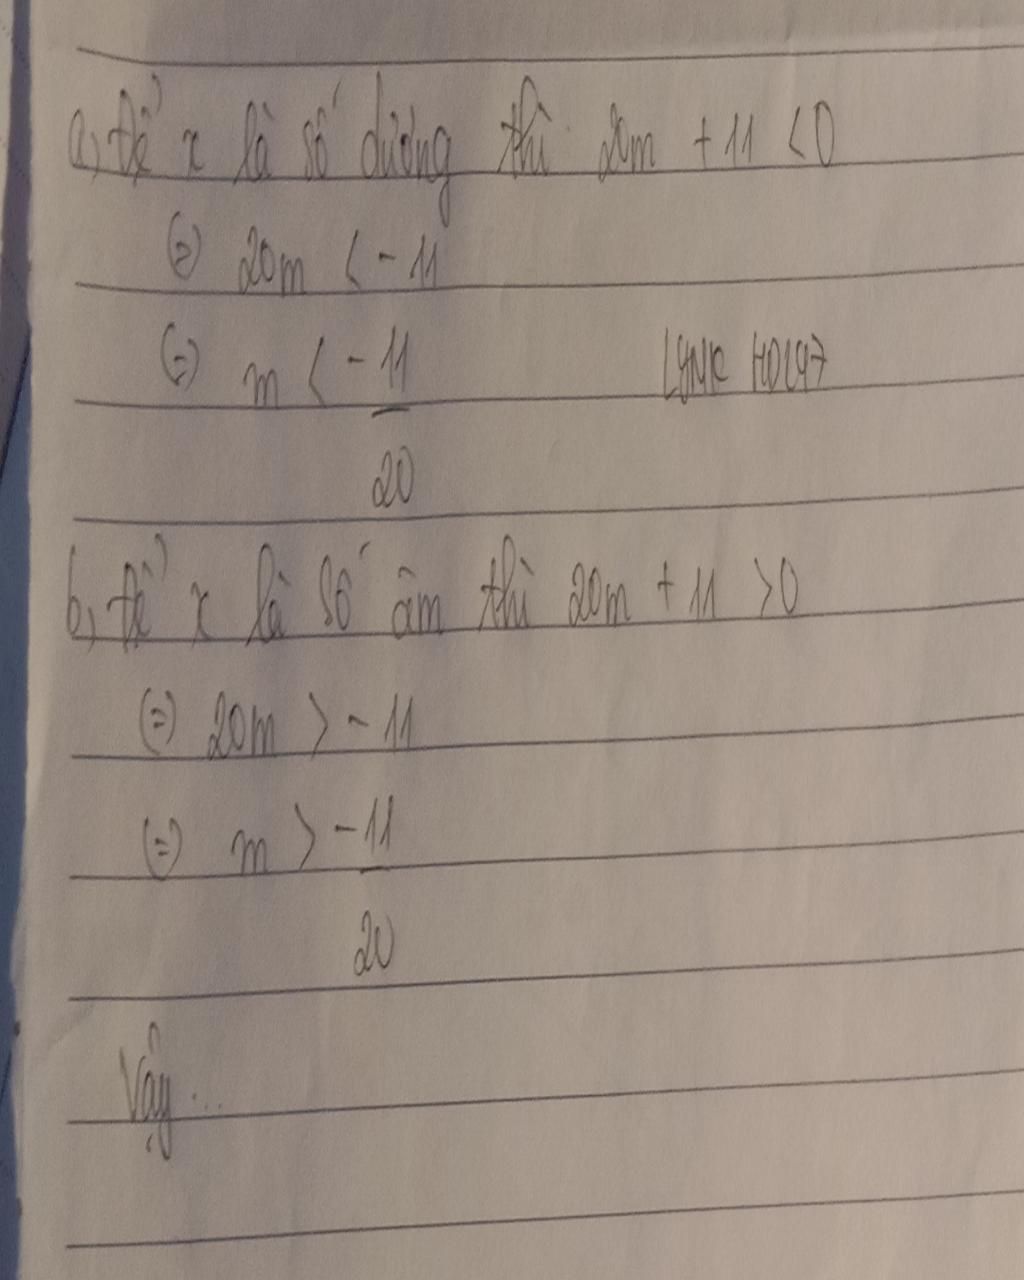 a, Để x là số dương thì 20m + 11 < 0
(=) 20m < -11
(=) m < -11
20
LYNK HD197
b, Để x là số âm thì 20m + 11 > 0
(=) 20m > -11
(=) m > -11
20
Vậy ...